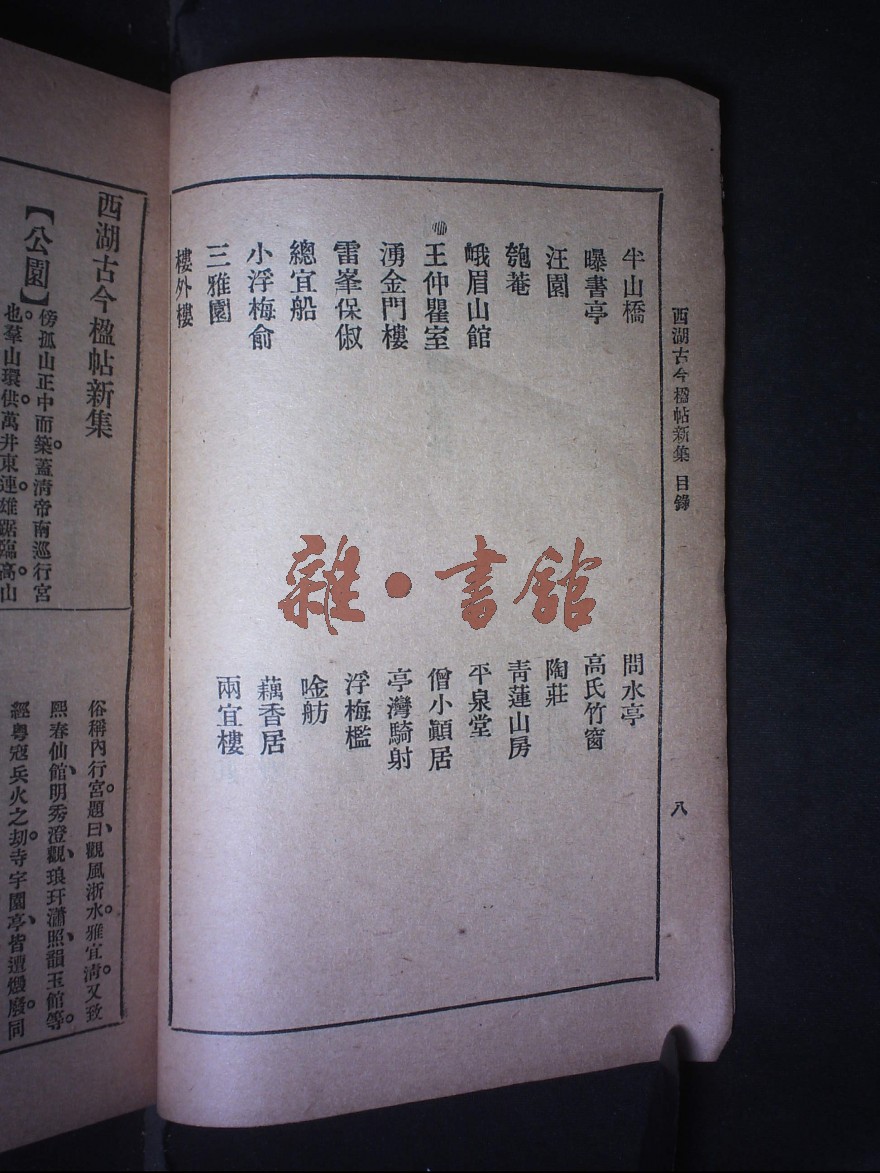 西湖古今楹帖新集 目錄
八
半山橋
問水亭
曝書亭
高氏竹窗
汪園
陶莊
匏菴
靑蓮山房
峨眉山館
平泉堂
王仲瞿室
僧小顚居
湧金門樓
亭灣騎射
雷峯保俶
浮梅檻
總宜船
唫舫
小浮梅俞
藕香居
三雅園
兩宜樓
樓外樓
雜·書館
西湖古今楹帖新集
【公園】
傍孤山正中而築蓋淸帝南巡行宮
也羣山環供萬井東連雄踞臨高山
俗稱內行宮題曰觀風浙水雅宜淸又致
熙春仙館明秀澄觀琅玕瀟照韻玉館等
經粤寇兵火之刼寺宇園亭皆遭燬廢同